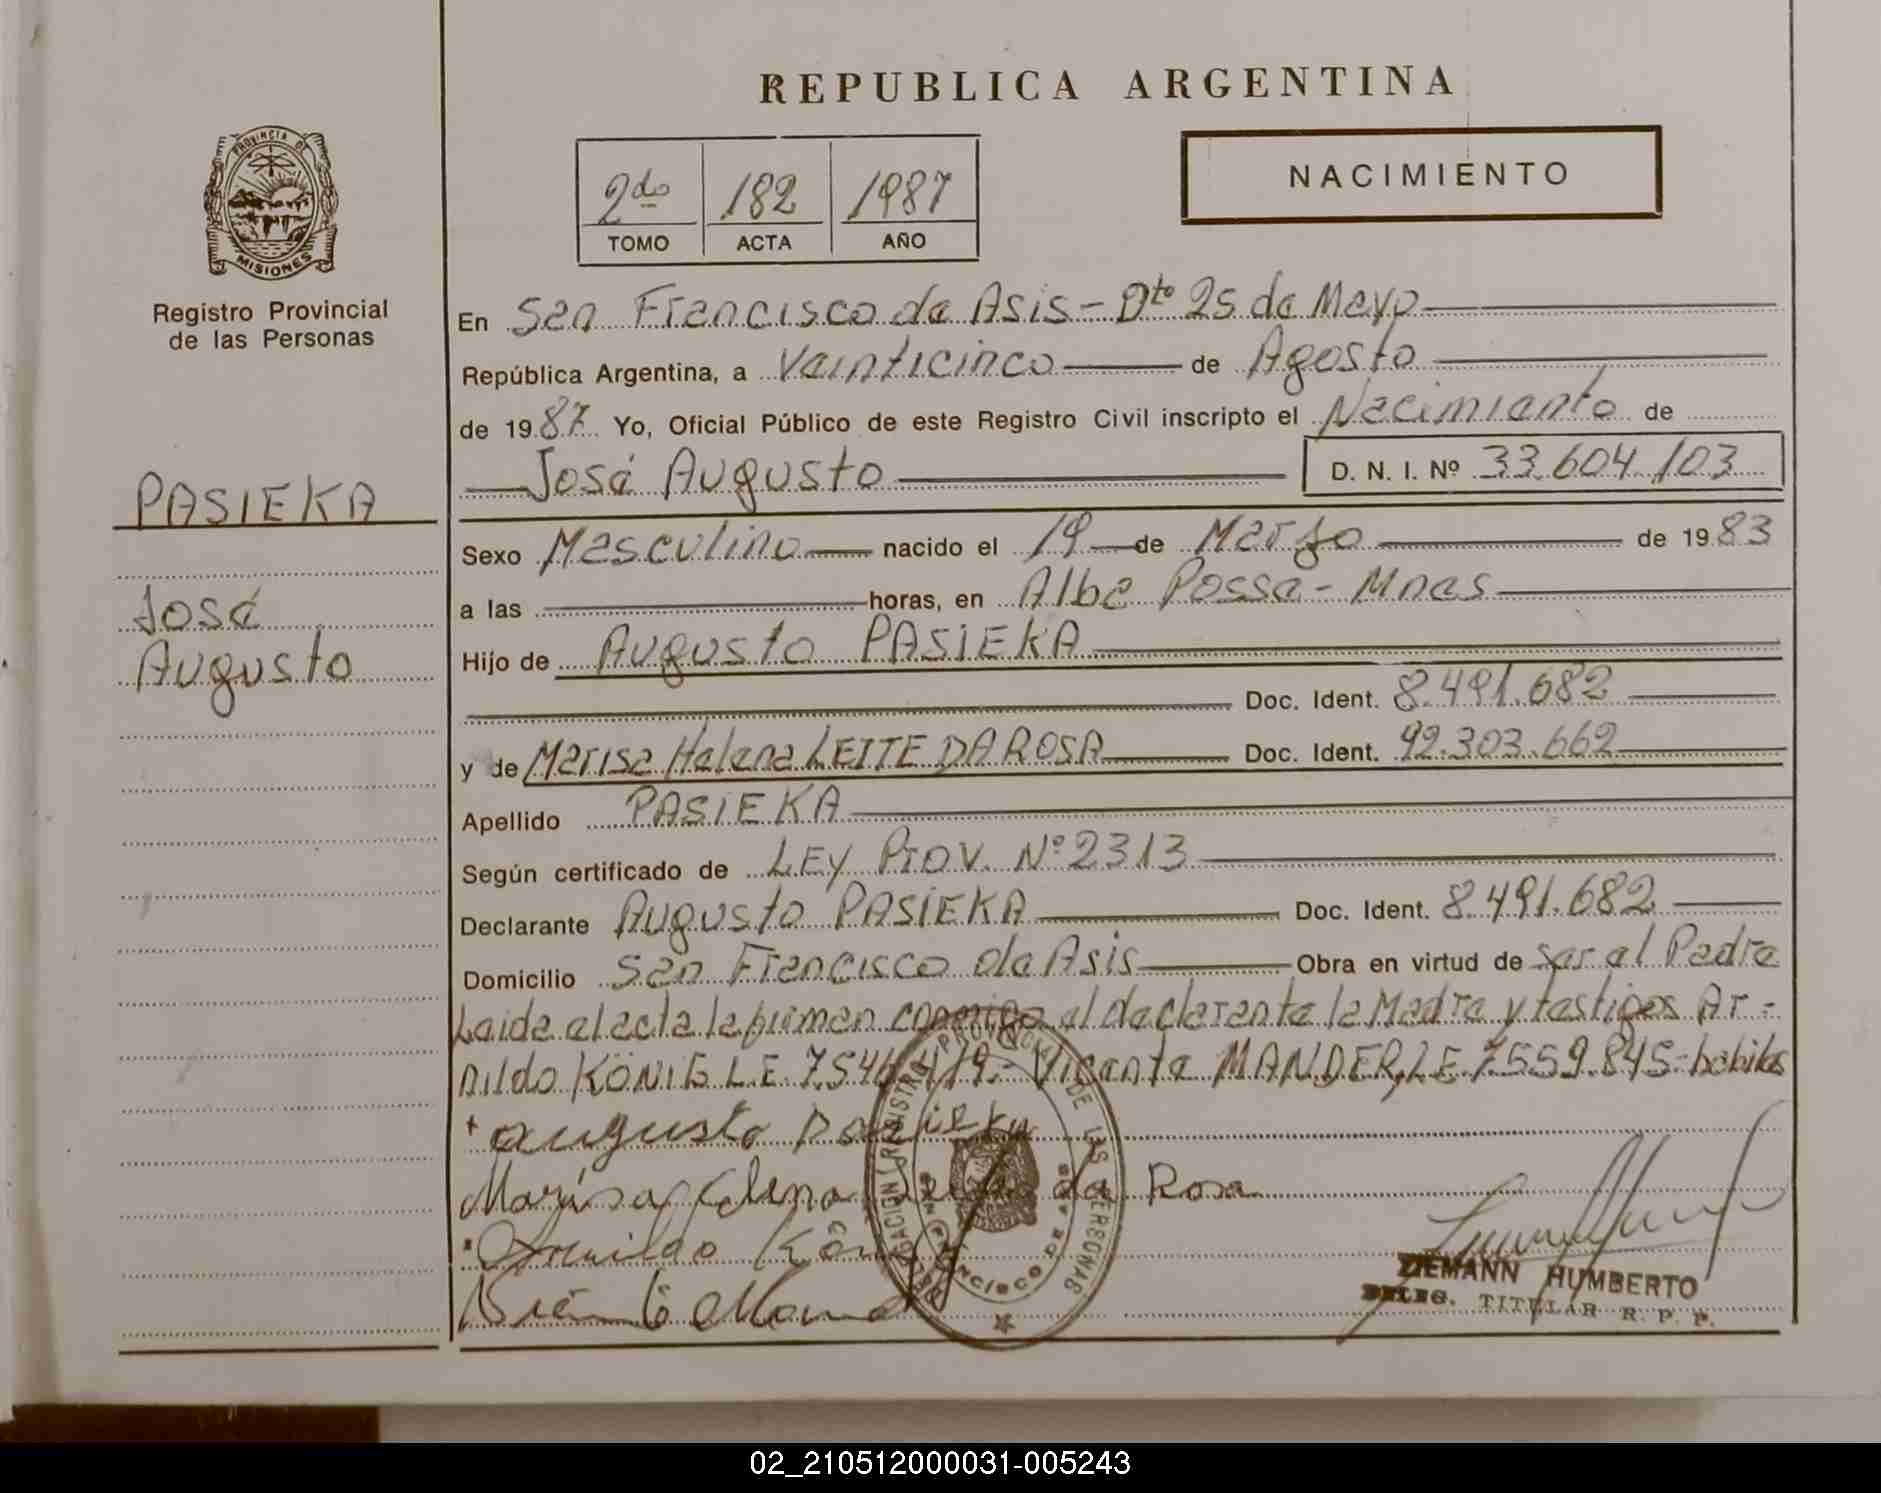 REPUBLICA ARGENTINA
PROVINCIA DE
MISIONES
Registro Provincial
de las Personas
2do 182 1987
TOMO ACTA AÑO
NACIMIENTO
En San Francisco de Asis - Dto 25 de Mayo
República Argentina, a Veinticinco de Agosto
de 1987 Yo, Oficial Público de este Registro Civil inscripto el Nacimiento de
José Augusto D. N. I. Nº 33.604.103
PASIEKA
José
Augusto
Sexo Masculino nacido el 19 de Marzo de 1983
a las horas, en Alba Possa - Mnes
Hijo de Augusto PASIEKA
Doc. Ident. 8.491.682
y de Marisa Helena LEITE DA ROSA Doc. Ident. 92.303.662
Apellido PASIEKA
Según certificado de LEY Prov. Nº 2313
Declarante Augusto PASIEKA Doc. Ident. 8.491.682
Domicilio San Francisco de Asis Obra en virtud de ser el Padre
Leida el acta la firman conmigo el declarante la Madre y testigos Ar=
nildo KÖNIG L.E. 7.546.419.- Vicente MANDER, L.E. 7.559.845- habiles
+ Augusto Pasieka
Marisa Elena Leite da Rosa
Arnildo König
ZIEMANN HUMBERTO
DELEG. TITULAR R. P. P.
PROVINCIAL DE LAS PERSONAS
SAN FRANCISCO DE ASIS
02_210512000031-005243